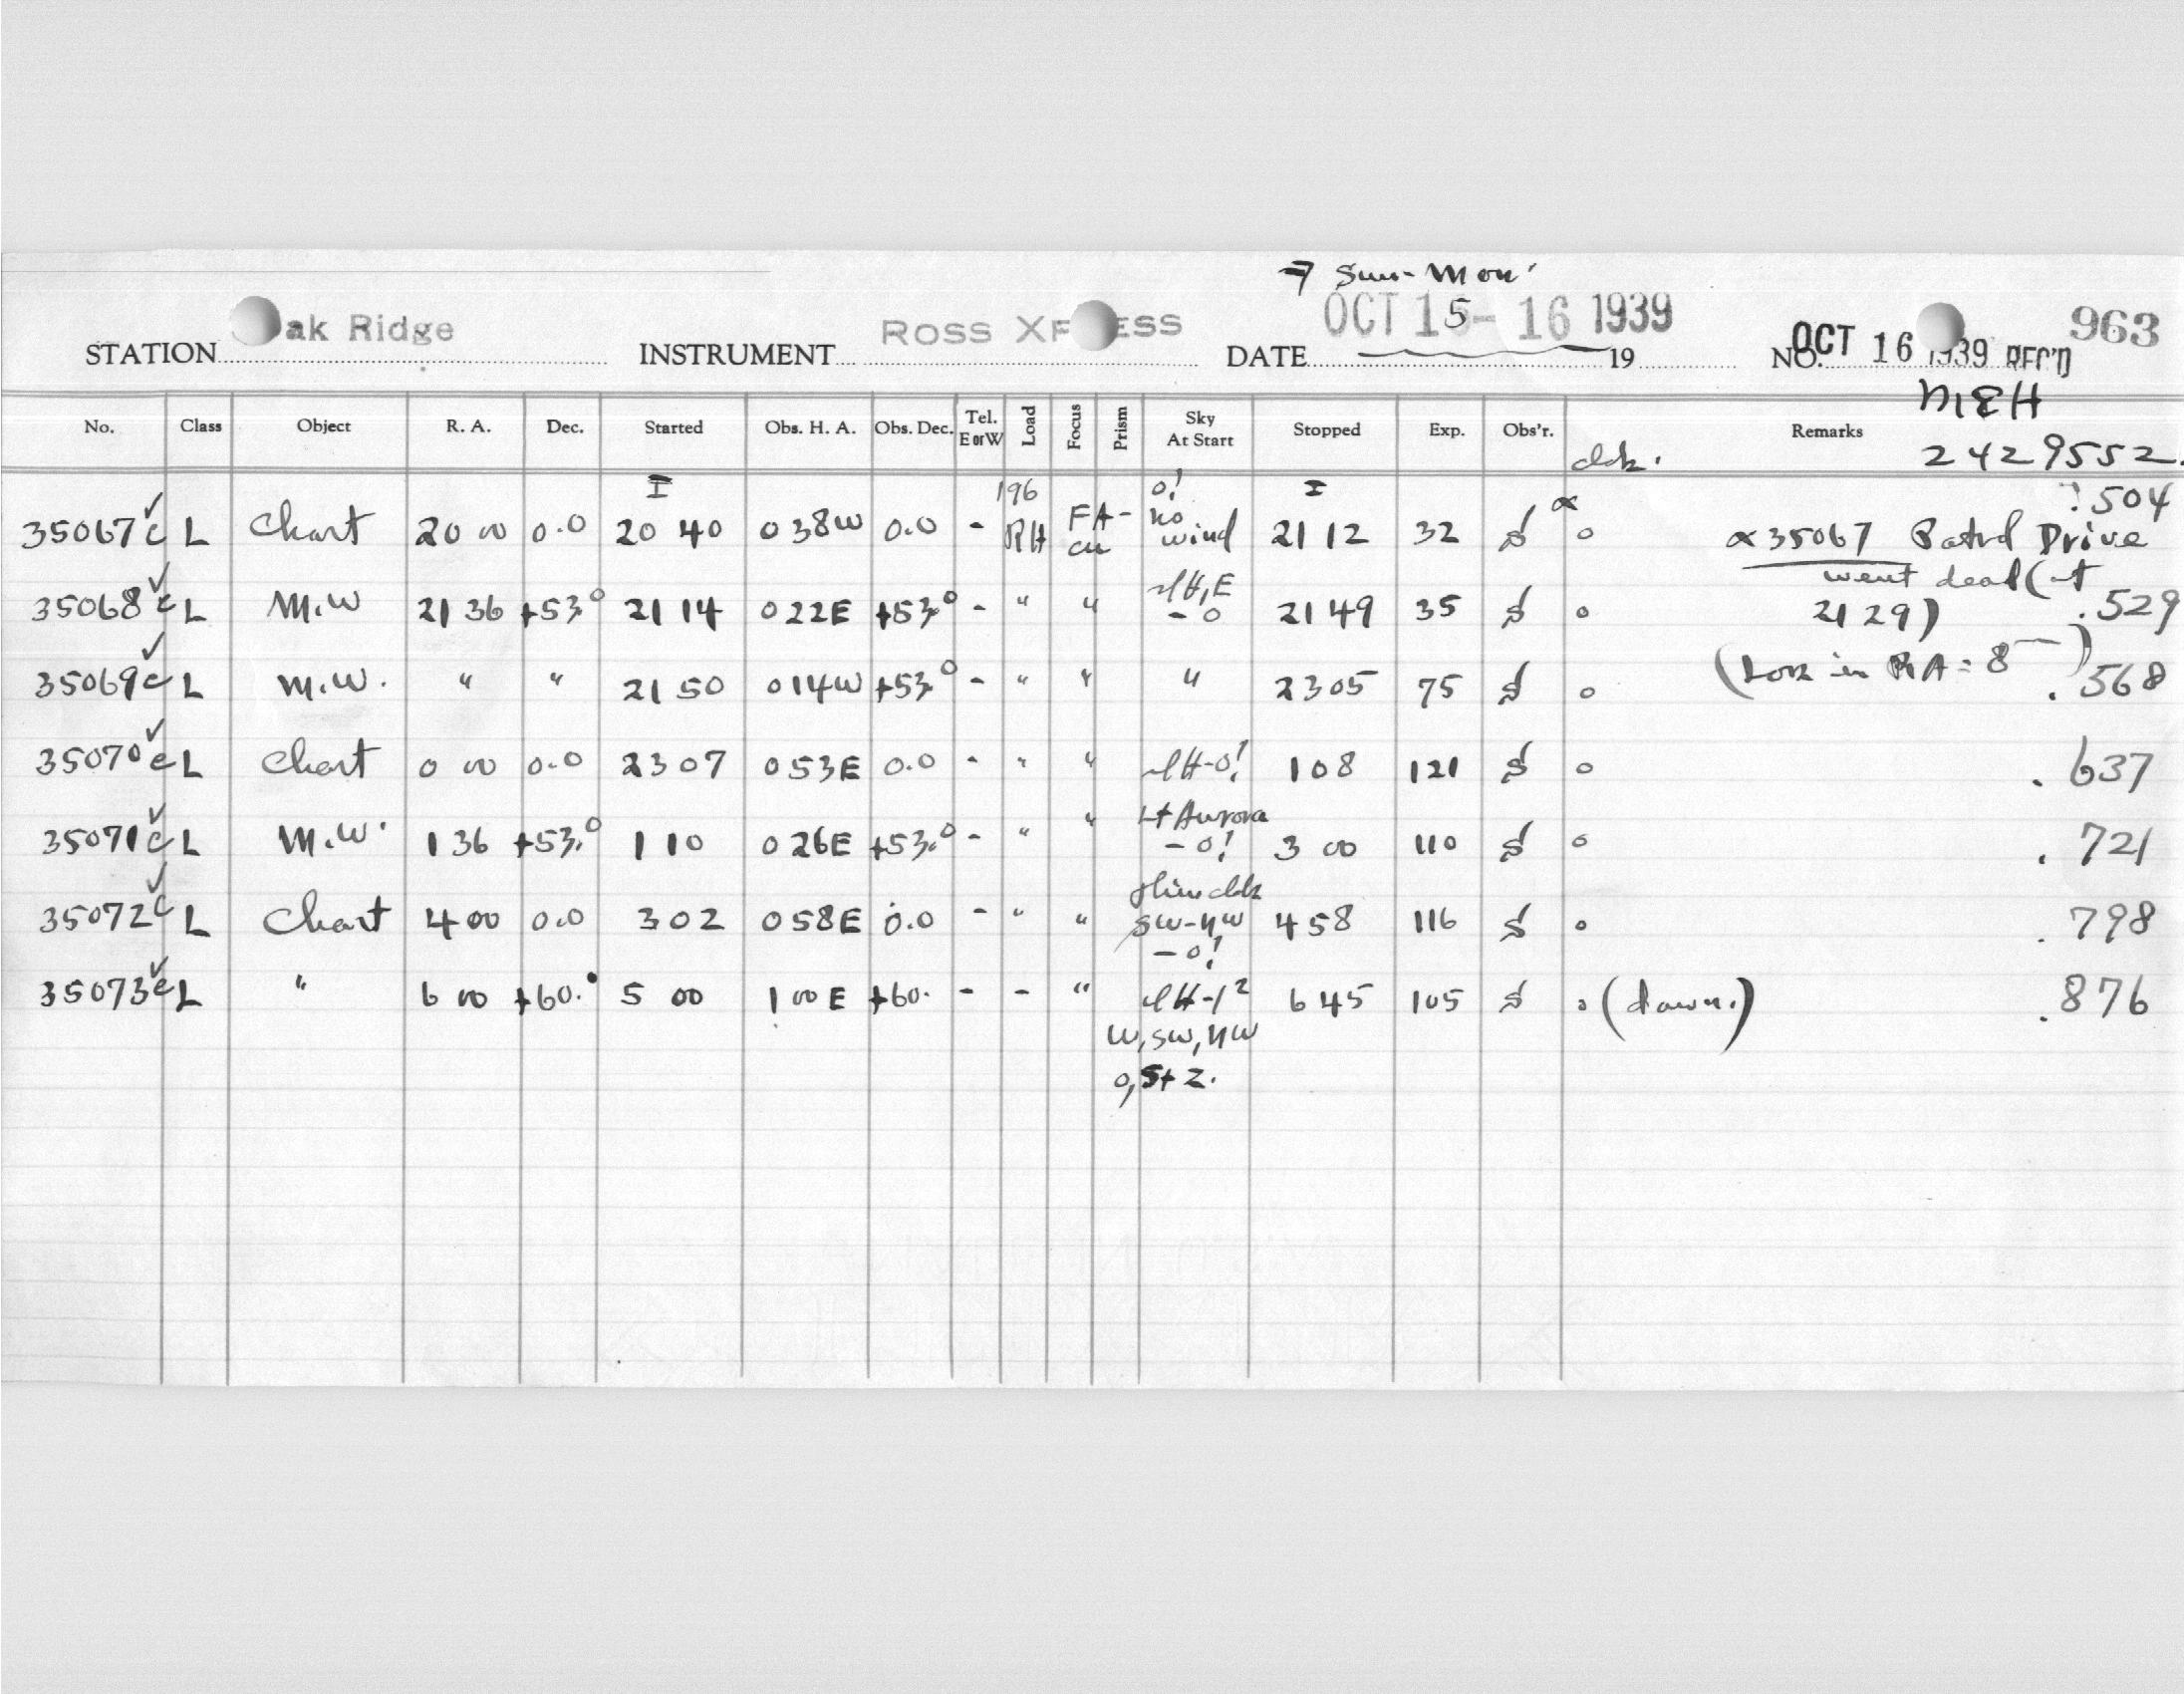 Sun-Mon.
STATION Oak Ridge INSTRUMENT ROSS XPRESS DATE OCT 15-16 1939 19 NO. OCT 16 1939 REC'D 963
MEH
No. Class Object R. A. Dec. Started Obs. H. A. Obs. Dec. Tel. E or W Load Focus Prism Sky At Start Stopped Exp. Obs'r. Remarks
2429552.
35067c L Chart 20 00 0.0 20 40 0 38W 0.0 - 196 RH FA- 0! no wind 21 12 32 α 0 α 35067 Patrol Drive .504
went dead (at
35068c L M.W 21 36 +53.° 21 14 0 22E +53.° - " " H,E - 0 21 49 35 0 21 29) .529
35069c L M.W. " " 21 50 0 14W +53.° - " " " 23 05 75 0 (Loss in RA = 8 ) .568
35070c L Chart 0 00 0.0 23 07 0 53E 0.0 - " " H-0! 1 08 121 0 .637
35071c L M.W. 1 36 +53.° 1 10 0 26E +53.° - " " Lt Aurora - 0! 3 00 110 0 .721
35072c L Chart 4 00 0.0 3 02 0 58E 0.0 - " " thin clds SW-NW - 0! 4 58 116 0 .798
35073c L " 6 00 +60.° 5 00 1 00E +60. - - " H-1² 6 45 105 0 (dawn.) .876
W, SW, NW
0, S+Z.